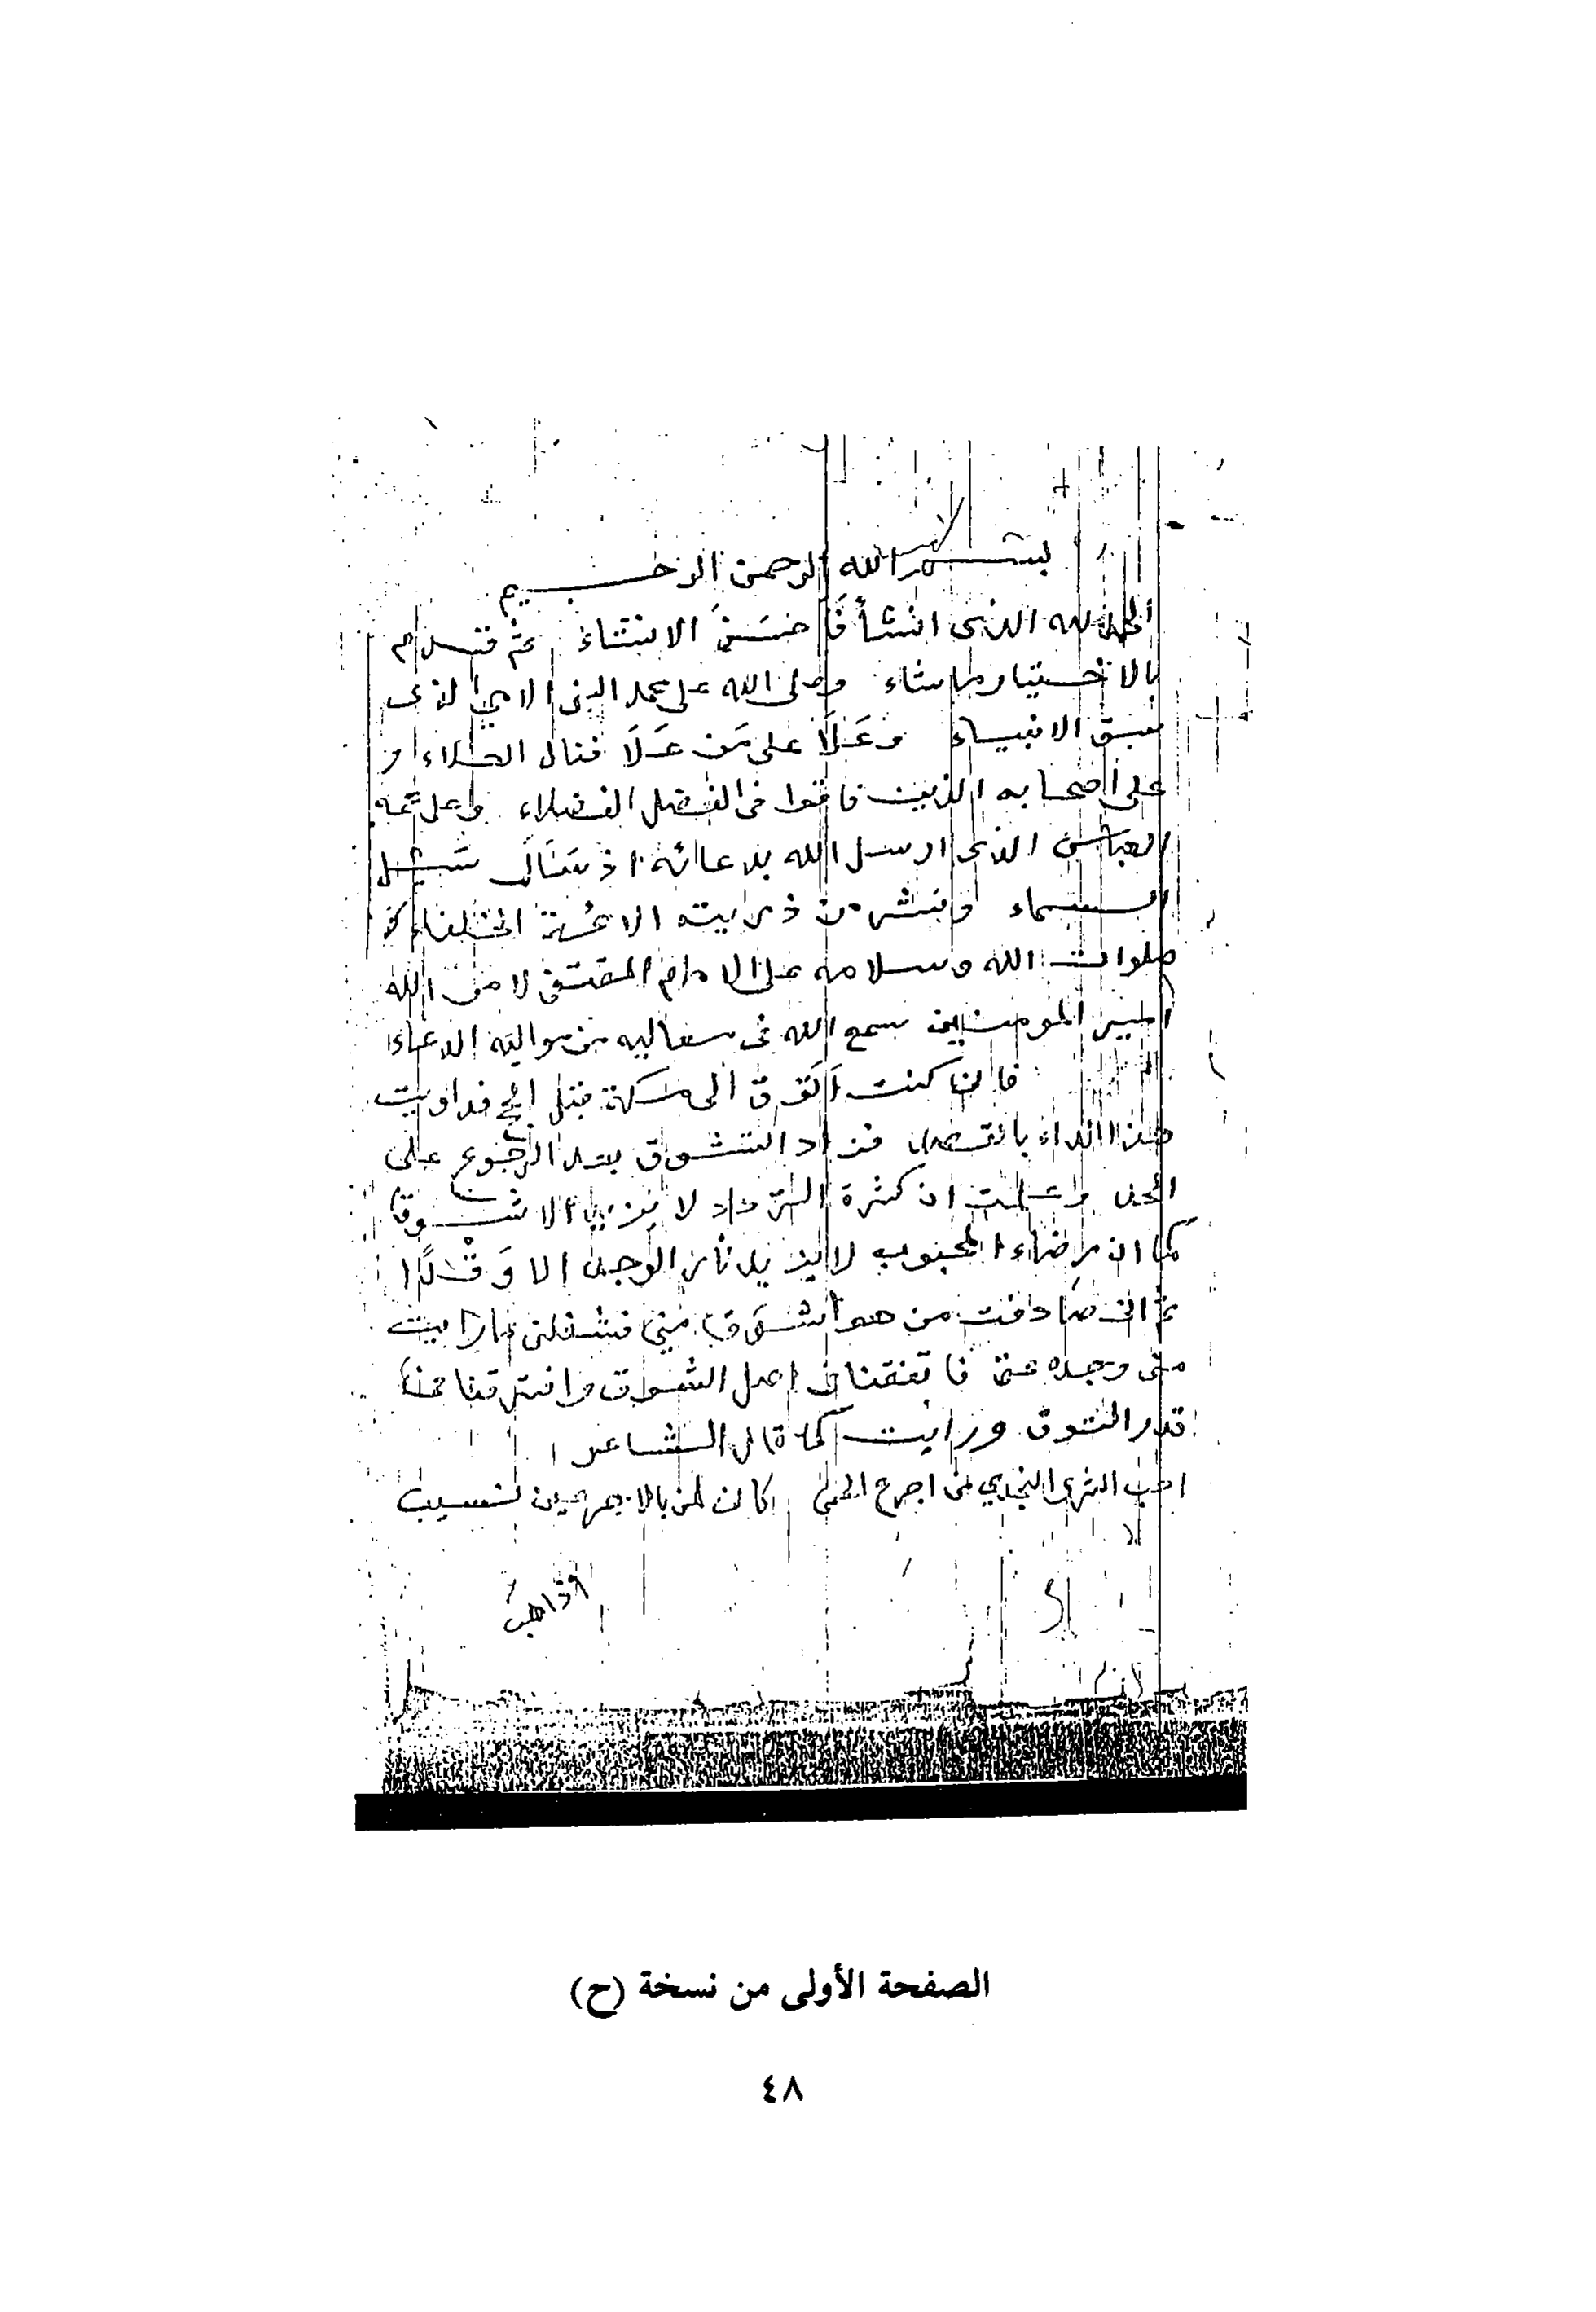 بسم الله الرحمن الرحيم
الحمد لله الذى انشأ فَاحسَنَ الانشاء ثم قدم
بالاختيار ما شاء وصلى الله على محمد النبى الامى الذى
سبق الانبياء وعَلَا على مَن عَلَا فنال العلاء و
على اصحابه الذين فاقوا فى الفضل الفضلاء وعلى عمه
العباس الذى ارسل الله بدعائه اذ سَأل سَيْل
السماء ونشر من ذريته الائمة الخلفاء
صلوات الله وسلامه على الامام المقتفى لامر الله
امير المومنين سمع الله فى معاليه من مواليه الدعاء
فانى كنت اَتَوق الى مكة قبل الحج فداويت
هذا الداء بالقصد فزاد التشوق بعد الرجوع على
الحد وعلمت ان كثرة الترداد لا يزيد الا شوقا
كما ان رضاء المحبوب لا يزيد نار الوجد الا وَقْدًا
ثم انى صَادفت من هو اشوق منى فشغلنى ما رايت
من وجده عنى فاتفقنا فى اصل الشوق وافترقنا فى
قدر التوق ورايت كما قال الشاعر
احب الثرى النجدي من اجرع الحمى كان لمن بالاجرعين نسيب
الصفحة الأولى من نسخة (ح)
٤٨